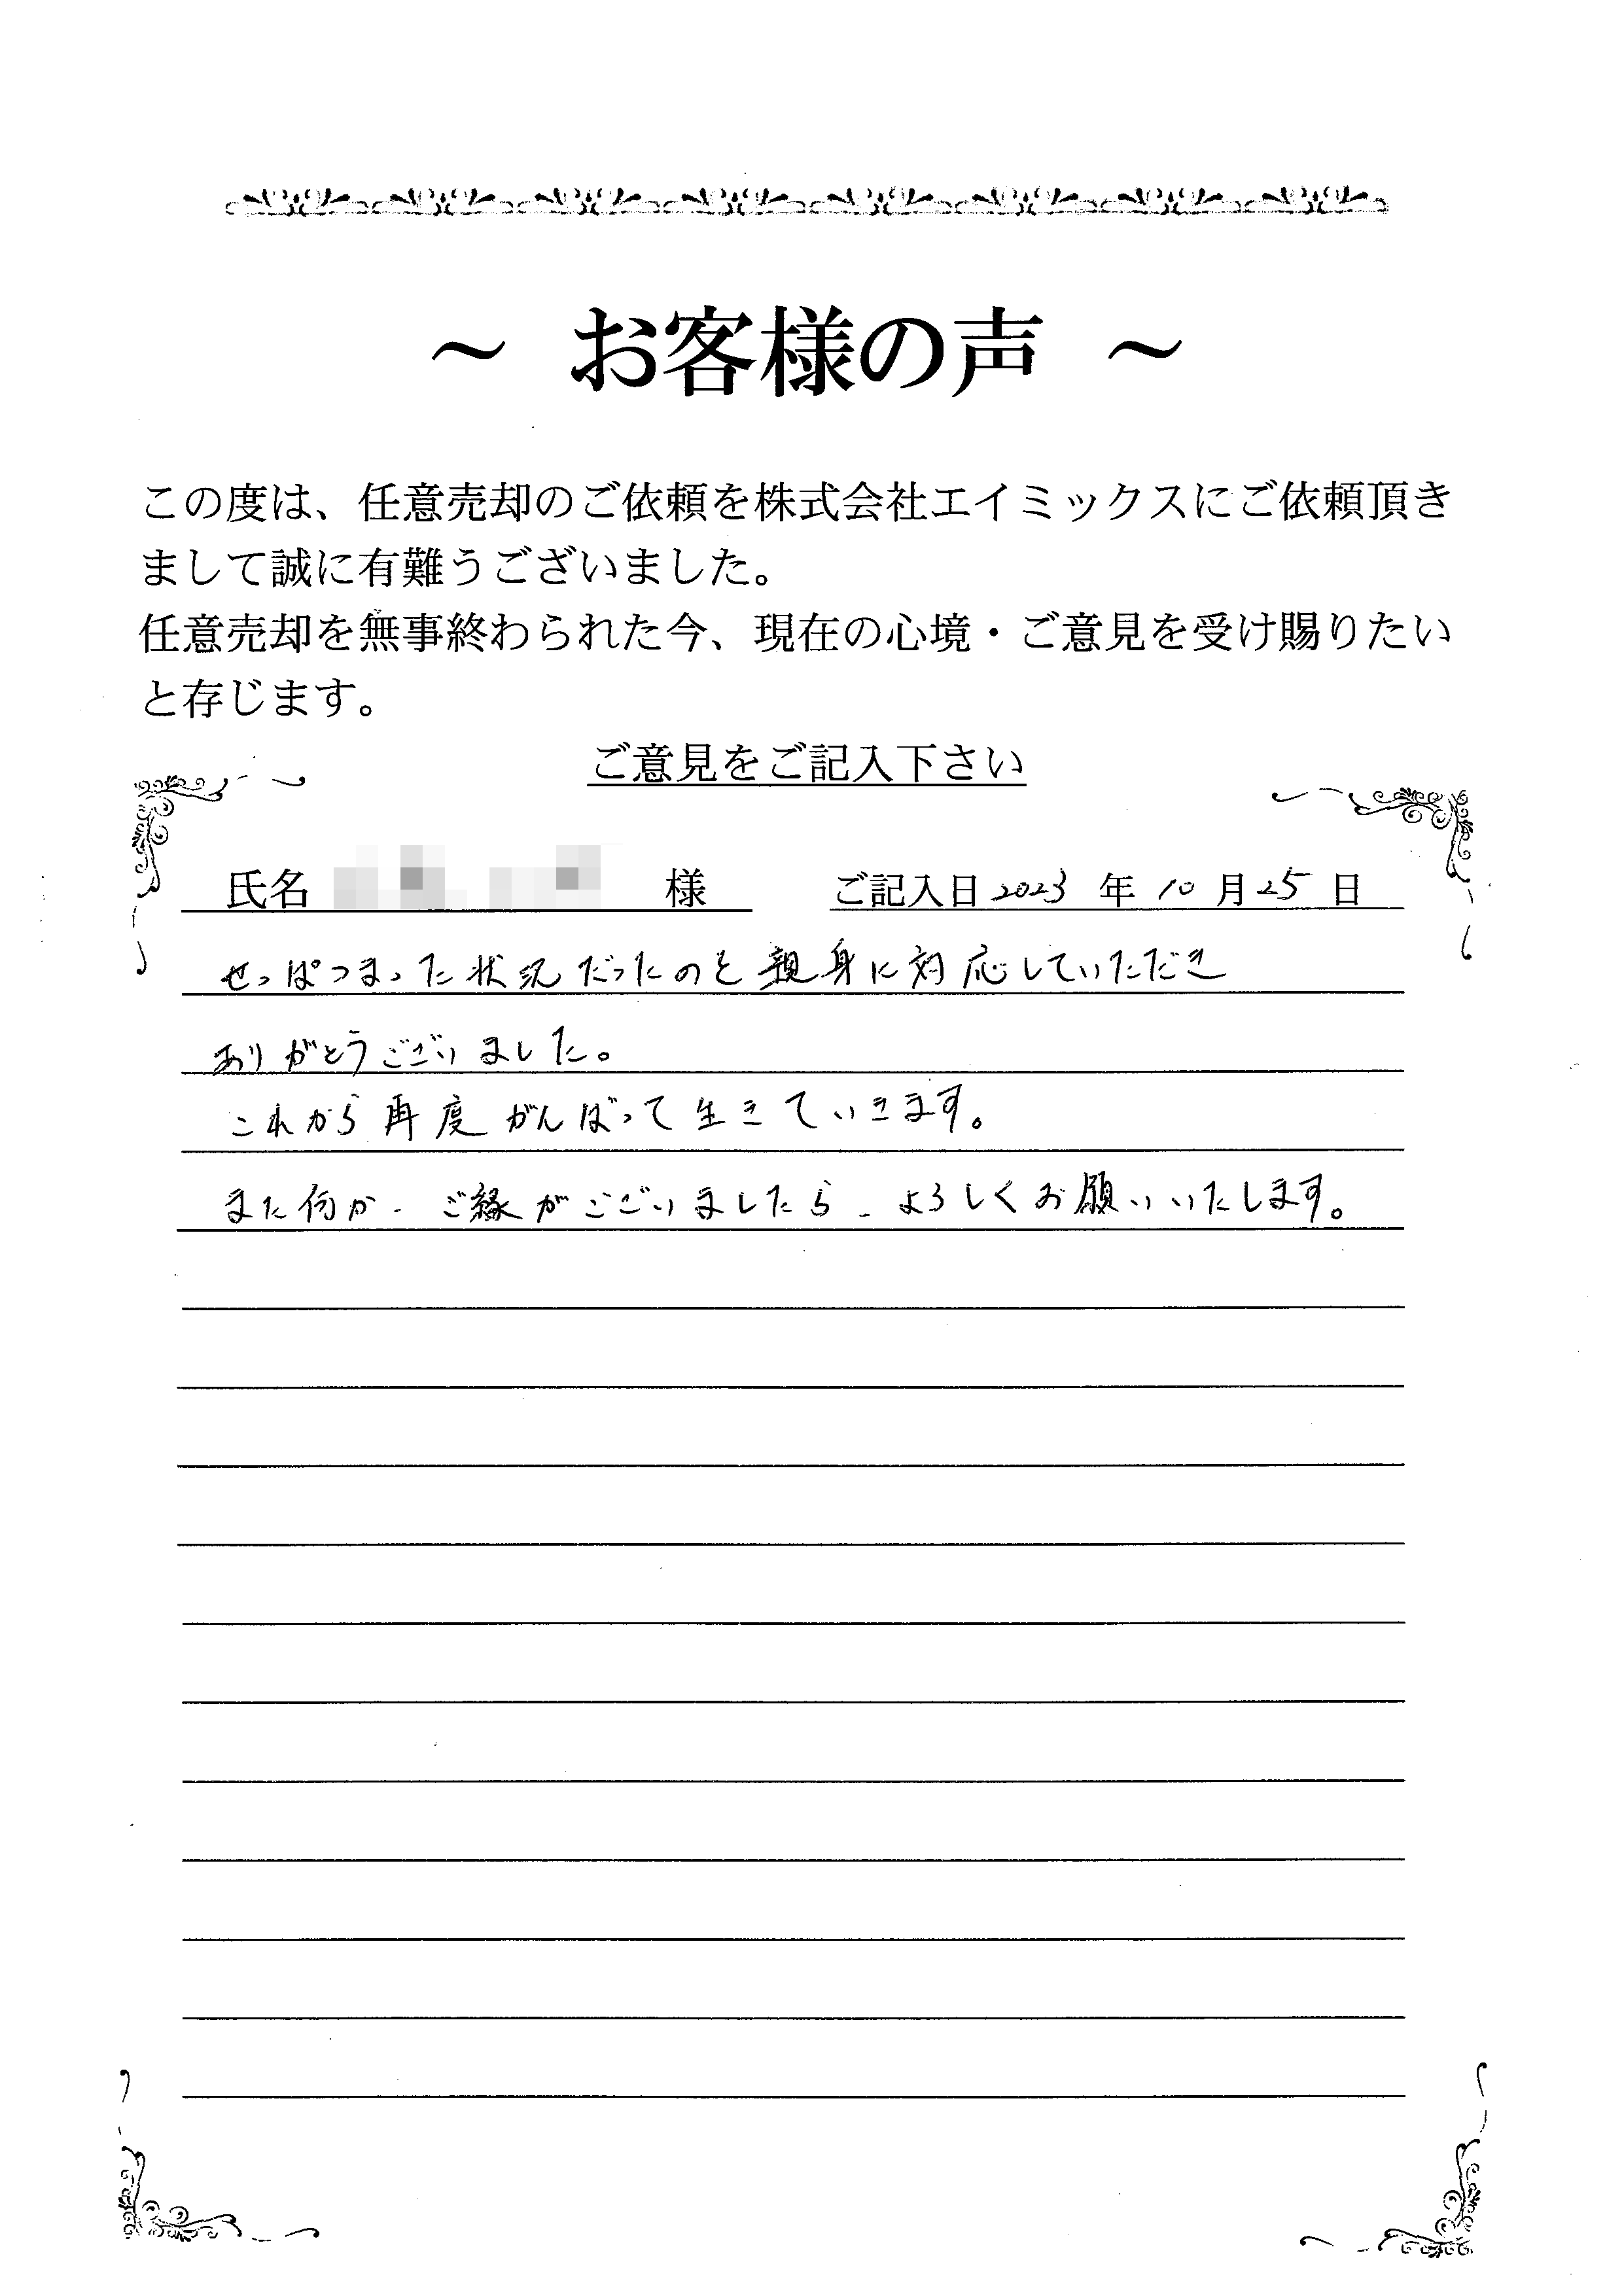 ～ お客様の声 ～
この度は、任意売却のご依頼を株式会社エイミックスにご依頼頂き
まして誠に有難うございました。
任意売却を無事終わられた今、現在の心境・ご意見を受け賜りたい
と存じます。
ご意見をご記入下さい
氏名 様 ご記入日 2023 年 10 月 25 日
せっぱつまった状況だったのを親身に対応していただき
ありがとうございました。
これから再度がんばって生きていきます。
また何か、ご縁がございましたら、よろしくお願いいたします。